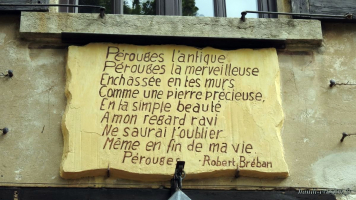 Pérouges l'antique
Pérouges la merveilleuse
Enchassée en tes murs
Comme une pierre précieuse,
En ta simple beauté
A mon regard ravi
Ne saurai t'oublier
Même en fin de ma vie.
Pérouges - Robert Bréban